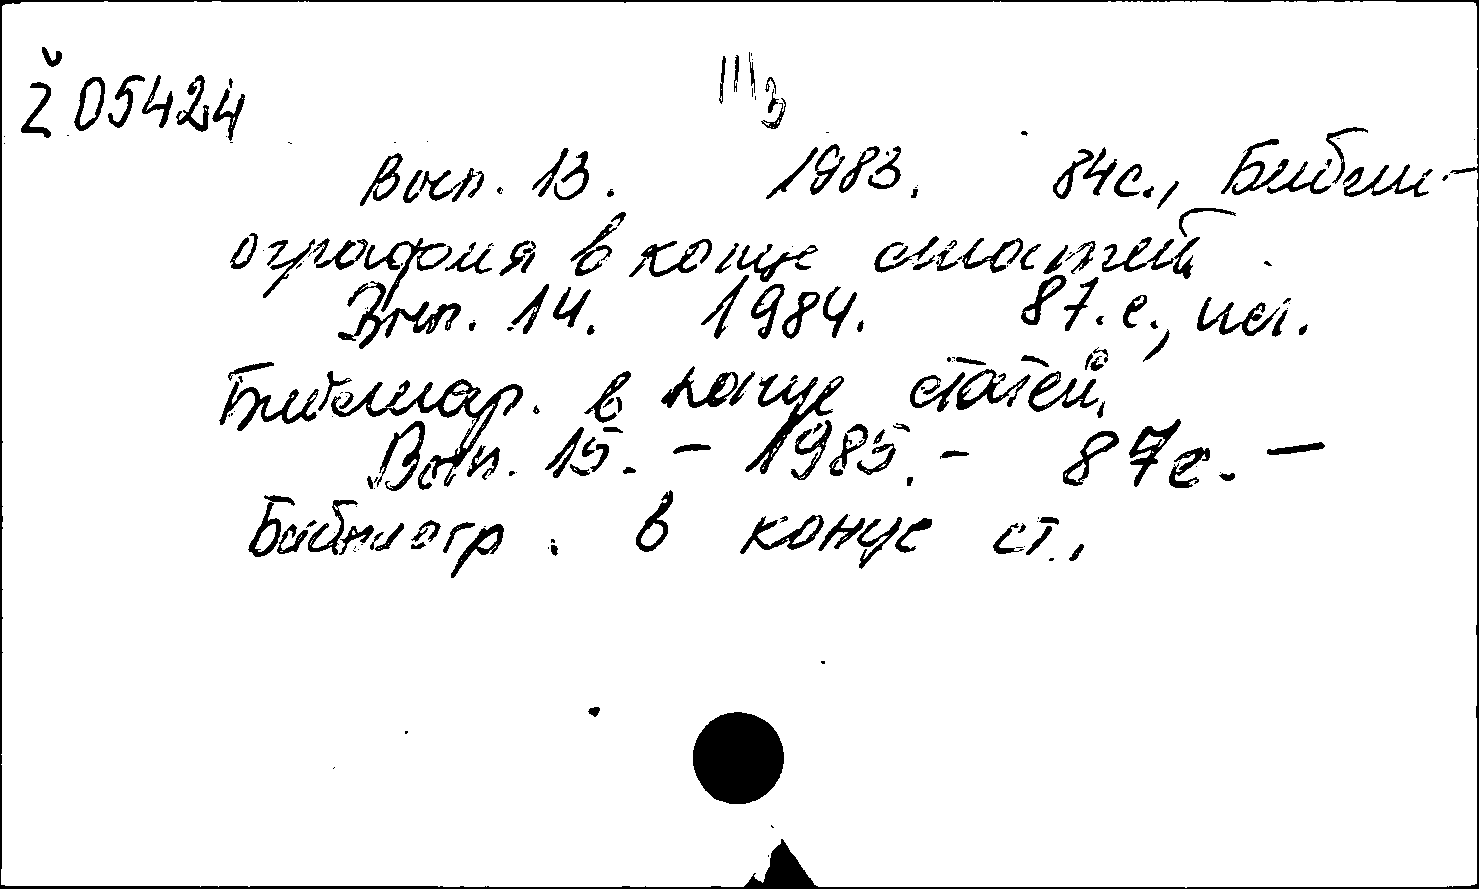 Ž 05424
III 3
Вып. 13. 1983. 84с., Библи-
ография в конце статей.
Вып. 14. 1984. 87.с., ил.
Библиогр. в конце статей.
Вып. 15. – 1985. – 87с. –
Библиогр. в конце ст.,